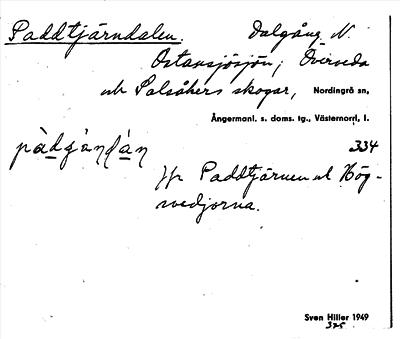 Paddtjärndalen. Dalgång N.
Östansjösjön; Överveda
och Salsåkers skogar, Nordingrå sn,
Ångermanl. s. doms. tg., Västernorrl. l.
334
jfr Paddtjärnen och Hög-
svedjorna.
Sven Hiller 1949
325